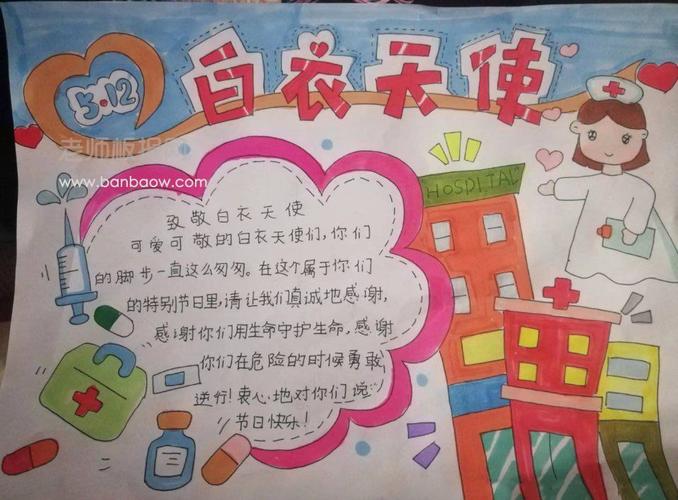 5.12
白衣天使
老师板报
www.banbaow.com
HOSPITAL
致敬白衣天使
可爱可敬的白衣天使们,你们
的脚步一直这么匆匆。在这个属于你们
的特别节日里,请让我们真诚地感谢,
感谢你们用生命守护生命,感谢
你们在危险的时候勇敢
逆行!衷心地对你们说
节日快乐!